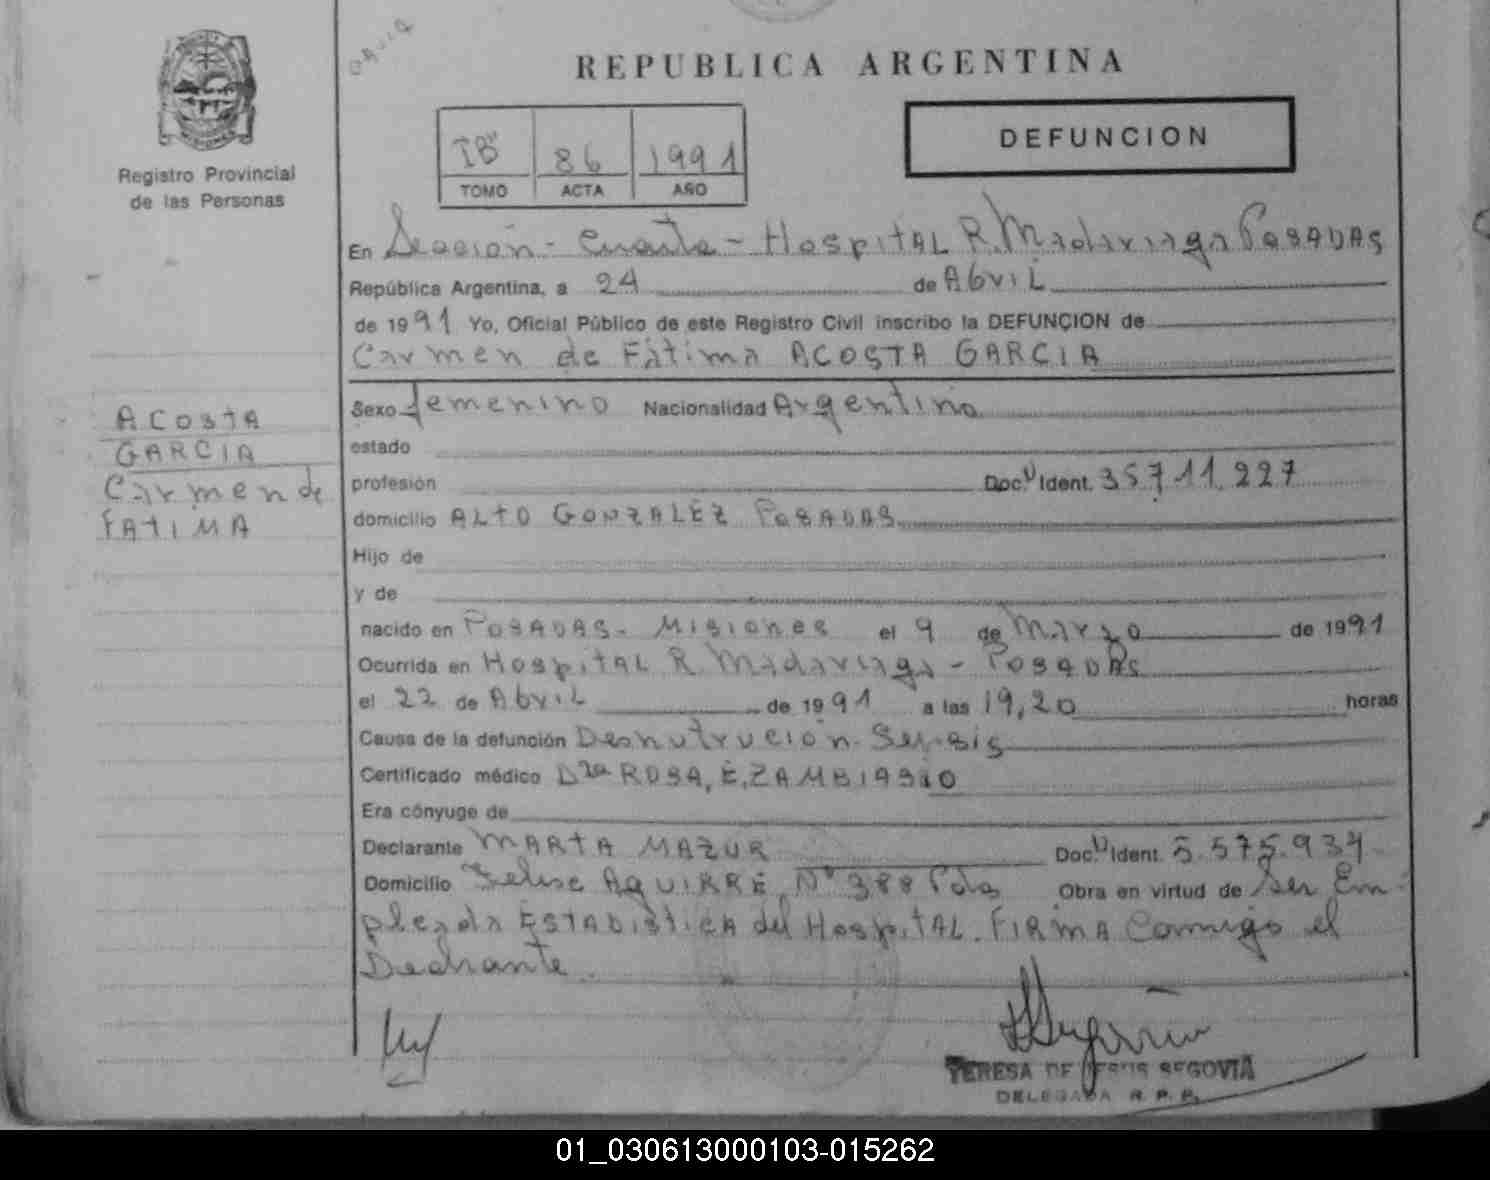 REPUBLICA ARGENTINA
Registro Provincial
de las Personas
86 1991
TOMO ACTA AÑO
DEFUNCION
En Sección - Cuarta - Hospital R. Madariaga Posadas
República Argentina, a 24 de Abril
de 1991 Yo, Oficial Público de este Registro Civil inscribo la DEFUNCION de
Carmen de Fátima ACOSTA GARCIA
ACOSTA
GARCIA
Carmen de
FATIMA
Sexo femenino Nacionalidad Argentina
estado
profesión Doc. Ident. 35.711.227
domicilio ALTO GONZALEZ POSADAS
Hijo de
y de
nacido en POSADAS - Misiones el 9 de Marzo de 1991
Ocurrida en Hospital R. Madariaga - POSADAS
el 22 de Abril de 1991 a las 19,20 horas
Causa de la defunción Desnutrución - Sepsis
Certificado médico Dra ROSA, E, ZAMBIASIO
Era cónyuge de
Declarante MARTA MAZUR Doc.U Ident. 5.575.934
Domicilio Felise AGUIRRE Nº 388 Pdas Obra en virtud de Ser Em-
pleada ESTADISTICA del HospitAL. FIRMA Conmigo el
Declrante.
TERESA DE JESUS SEGOVIA
DELEGADA R. P. P.
01_030613000103-015262